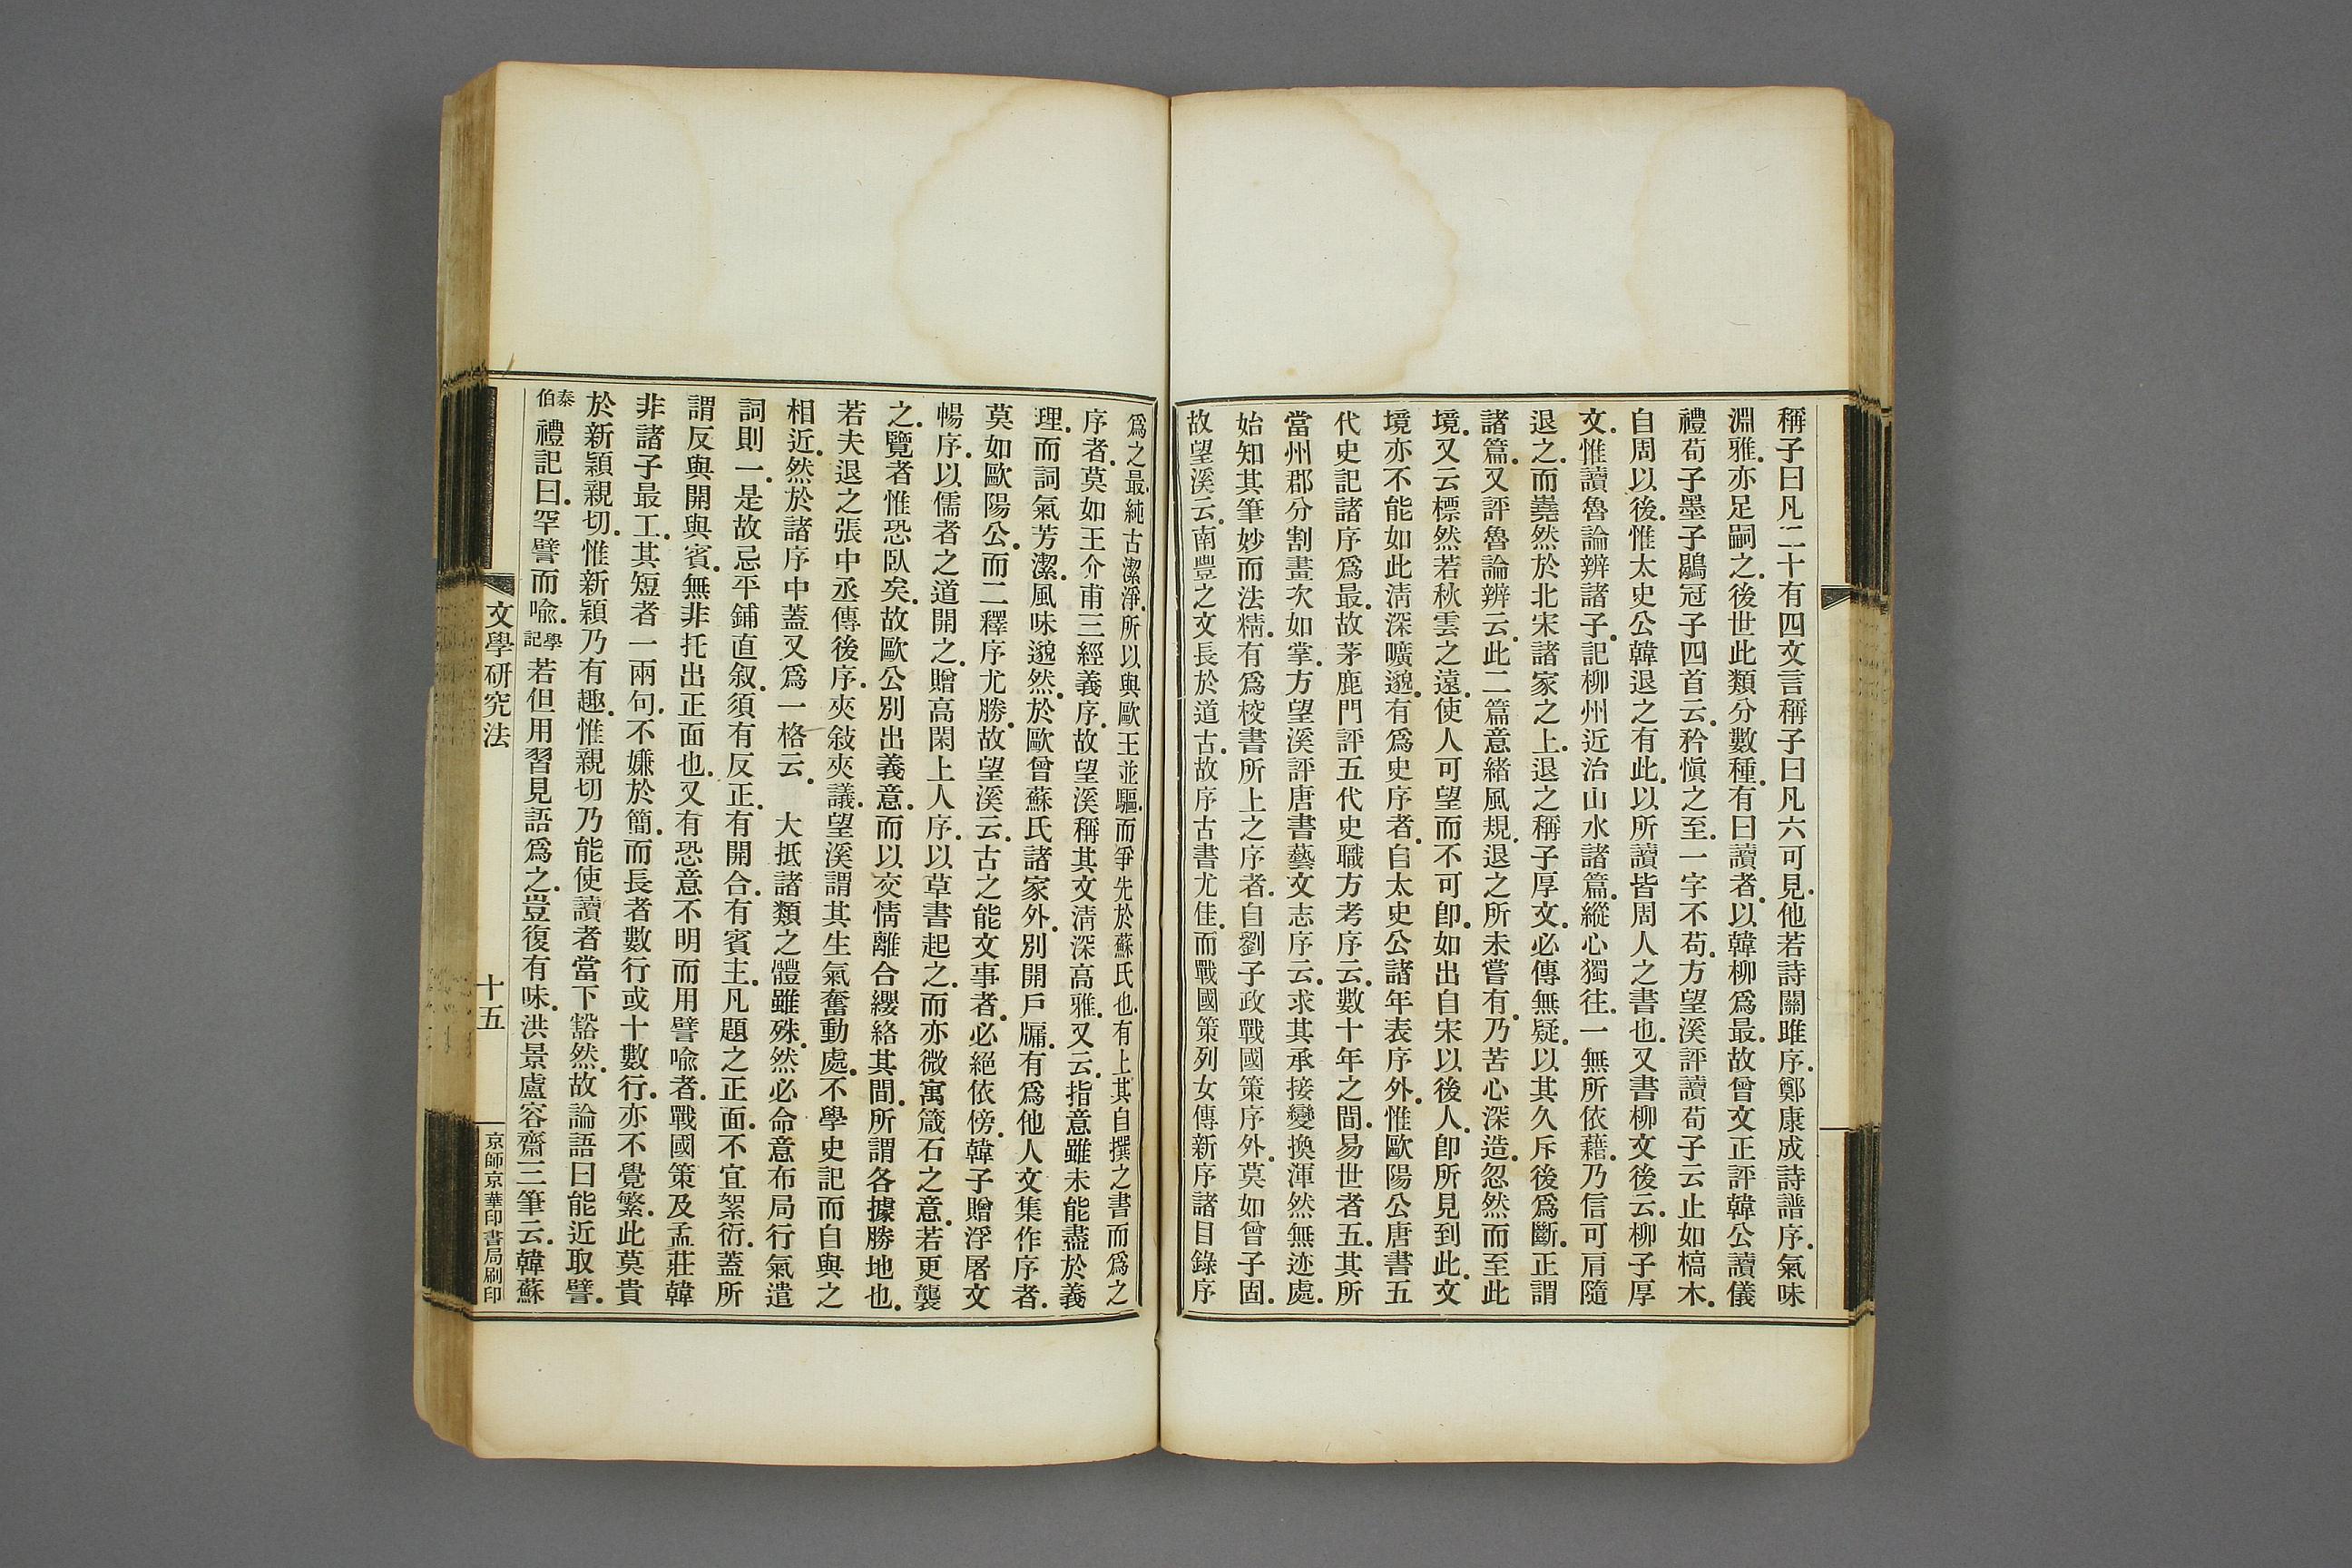 稱子曰凡二十有四文言稱子曰凡六可見.他若詩關雎序.鄭康成詩譜序.氣味
淵雅.亦足嗣之.後世此類分數種.有曰讀者.以韓柳爲最.故曾文正評韓公讀儀
禮荀子墨子鶡冠子四首云.矜愼之至.一字不苟.方望溪評讀荀子云止如槁木.
自周以後.惟太史公韓退之有此.以所讀皆周人之書也.又書柳文後云.柳子厚
文.惟讀魯論辨諸子.記柳州近治山水諸篇.縱心獨往.一無所依藉.乃信可肩隨
退之.而嶤然於北宋諸家之上.退之稱子厚文.必傳無疑.以其久斥後爲斷.正謂
諸篇.又評魯論辨云.此二篇意緒風規.退之所未嘗有.乃苦心深造.忽然而至此
境.又云標然若秋雲之遠.使人可望而不可卽.如出自宋以後人.卽所見到此.文
境亦不能如此淸深曠邈.有爲史序者.自太史公諸年表序外.惟歐陽公唐書五
代史記諸序爲最.故茅鹿門評五代史職方考序云.數十年之間.易世者五.其所
當州郡分割畫次如掌.方望溪評唐書藝文志序云.求其承接變換渾然無迹處.
始知其筆妙而法精.有爲校書所上之序者.自劉子政戰國策序外.莫如曾子固.
故望溪云.南豐之文長於道古.故序古書尤佳.而戰國策列女傳新序諸目錄序
爲之最.純古潔淨.所以與歐王並驅.而爭先於蘇氏也.有上其自撰之書而爲之
序者.莫如王介甫三經義序.故望溪稱其文淸深高雅.又云.指意雖未能盡於義
理.而詞氣芳潔.風味邈然.於歐曾蘇氏諸家外.別開戶牖.有爲他人文集作序者.
莫如歐陽公.而二釋序尤勝.故望溪云.古之能文事者.必絕依傍.韓子贈浮屠文
暢序.以儒者之道開之.贈高閑上人序.以草書起之.而亦微寓箴石之意.若更襲
之.覽者惟恐臥矣.故歐公別出義意.而以交情離合纓絡其間.所謂各據勝地也.
若夫退之張中丞傳後序.夾敍夾議.望溪謂其生氣奮動處.不學史記而自與之
相近.然於諸序中蓋又爲一格云.　大抵諸類之體雖殊.然必命意布局行氣遣
詞則一.是故忌平鋪直叙.須有反正.有開合.有賓主.凡題之正面.不宜絮衍.蓋所
謂反與開與賓.無非托出正面也.又有恐意不明而用譬喩者.戰國策及孟莊韓
非諸子最工.其短者一兩句.不嫌於簡.而長者數行或十數行.亦不覺繁.此莫貴
於新穎親切.惟新穎乃有趣.惟親切乃能使讀者當下豁然.故論語曰能近取譬.
泰伯禮記曰.罕譬而喩.學記若但用習見語爲之.豈復有味.洪景盧容齋三筆云.韓蘇
文學研究法
十五
京師京華印書局刷印